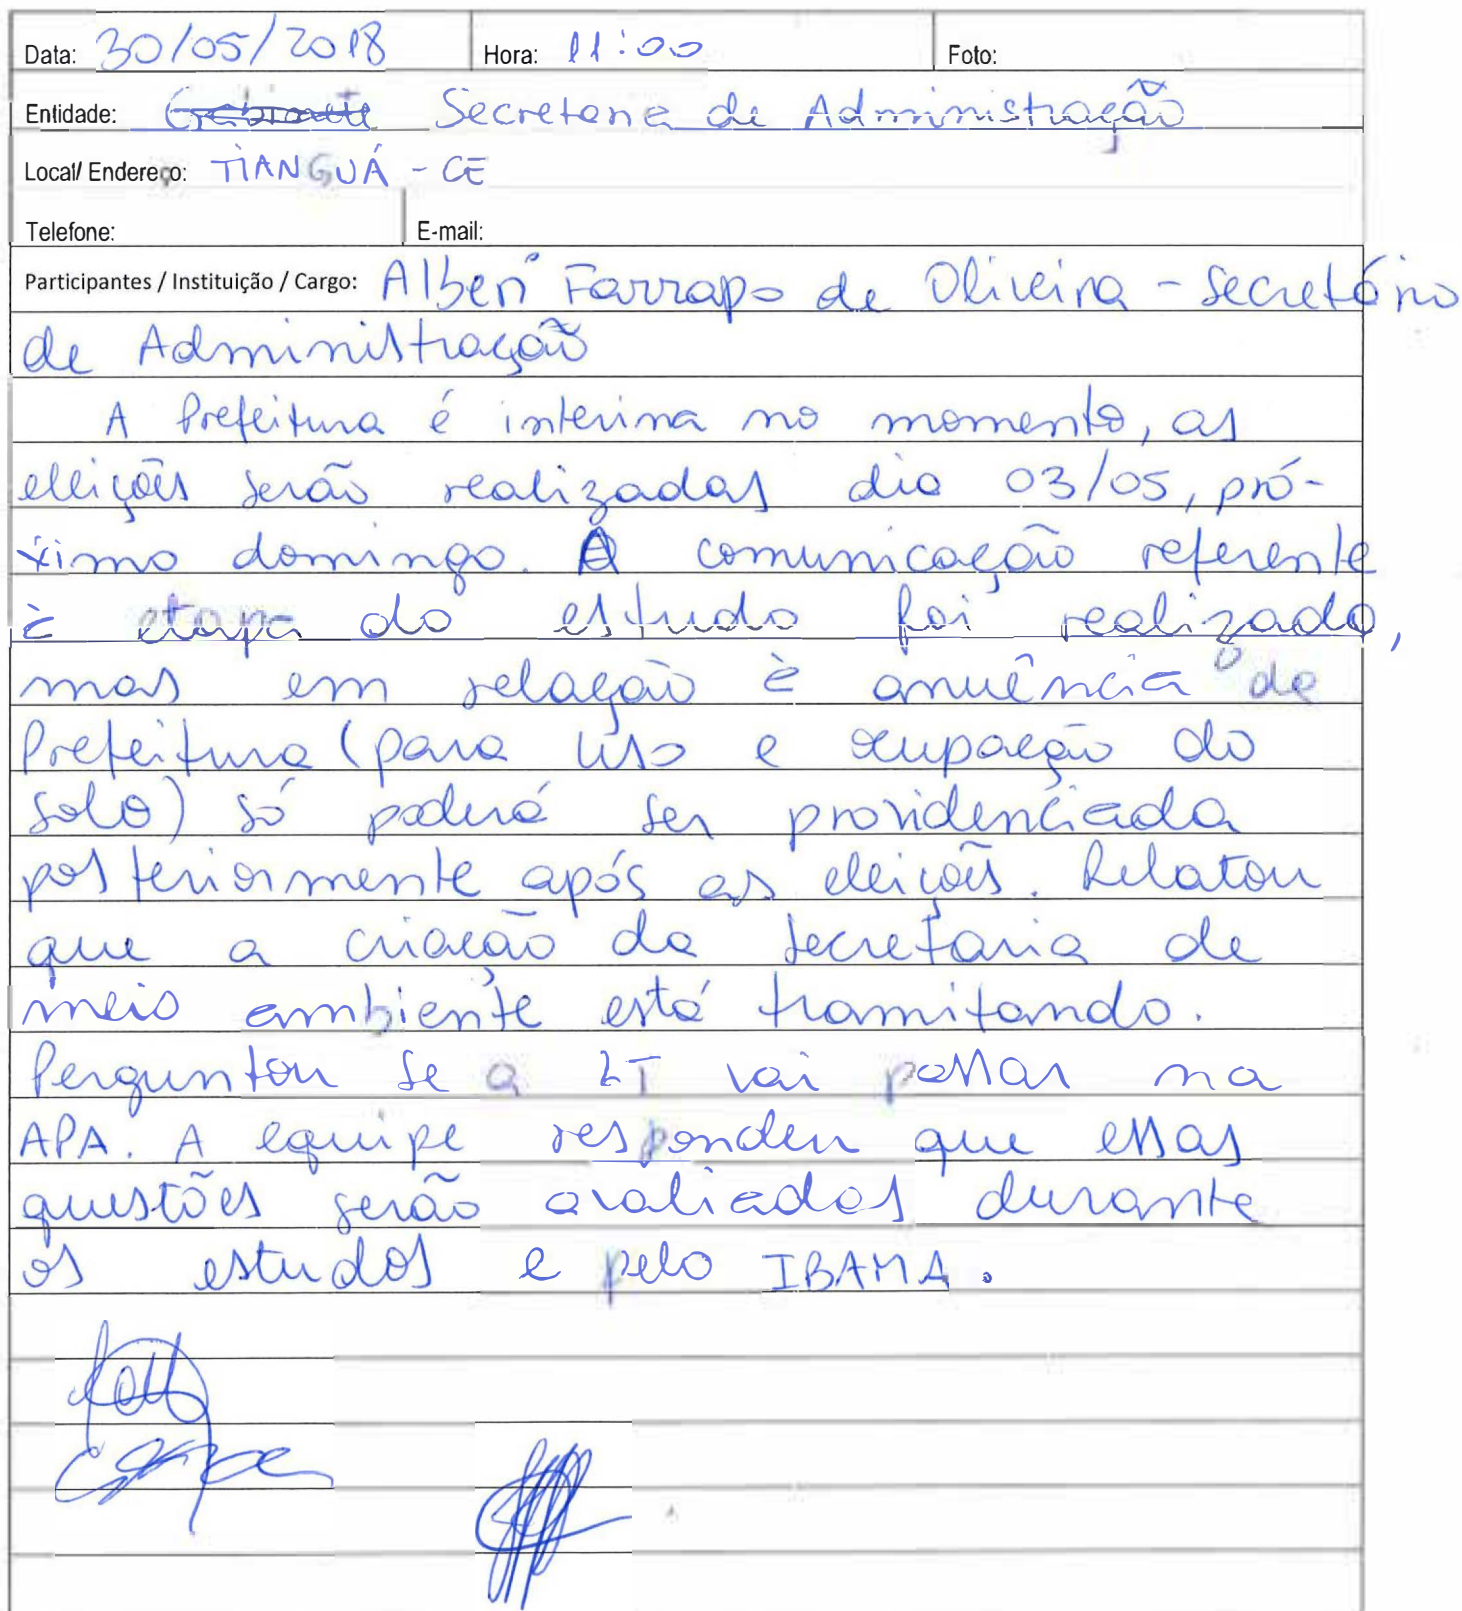 Data: 30/05/2018 Hora: 11:00 Foto:
Entidade: Secretaria de Administração
Local/ Endereço: TIANGUÁ - CE
Telefone: E-mail:
Participantes / Instituição / Cargo: Farrapo de Oliveira - Secretário
de Administração
A Prefeitura é interina no momento, as
eleições serão realizadas dia 03/05, pró-
ximo domingo. A comunicação referente
à etapa do estudo foi realizada,
mas em relação à anuência de
Prefeitura (para uso e ocupação do
solo) só poderá ser providenciada
posteriormente após as eleições. Relatou
que a criação da secretaria de
meio ambiente está tramitando.
Perguntou se a LT vai passar na
APA. A equipe respondeu que essas
questões serão avaliadas durante
os estudos e pelo IBAMA.